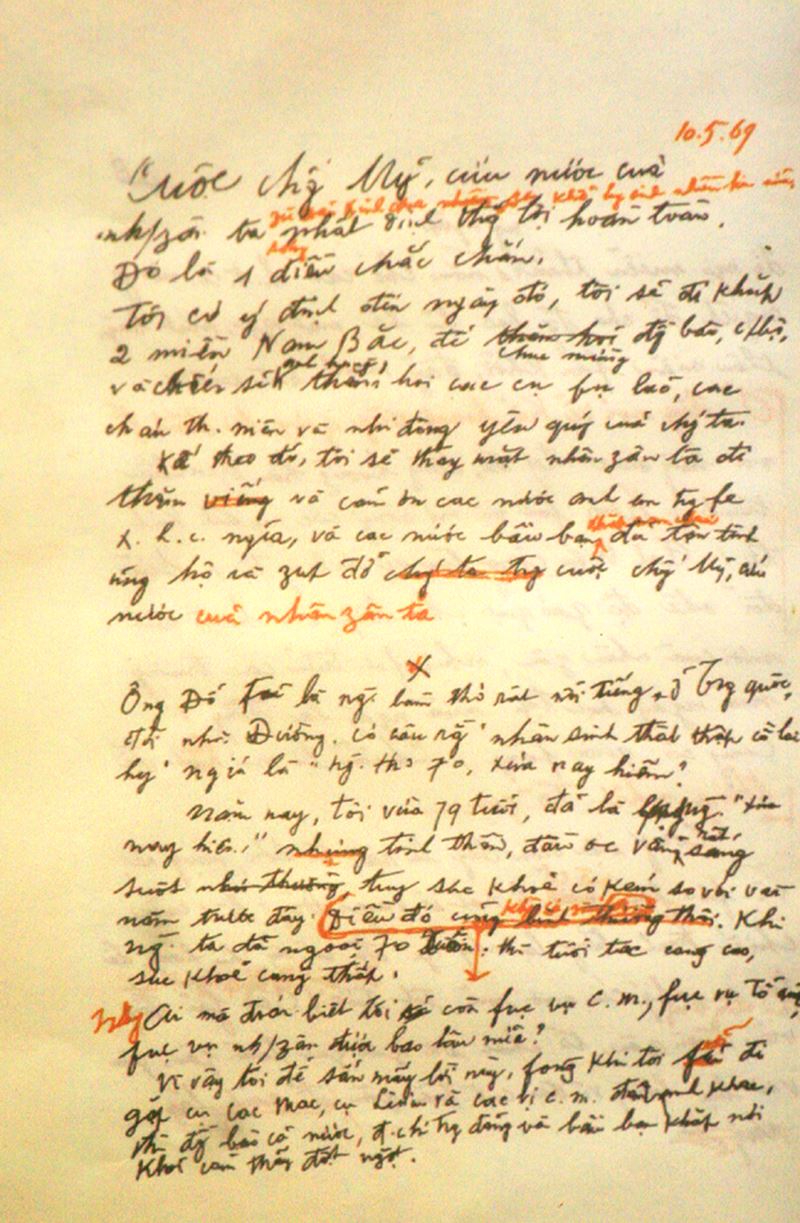 10.5.69
Cuộc chg' Mỹ, cứu nước của
dù phải kinh qua nhiều khổ hy sinh nhiều hơn nữa
nh/zân ta nhất định thg' lợi hoàn toàn.
Đó là 1 điều chắc chắn.
Tôi có ý định đến ngày đó, tôi sẽ đi khắp
2 miền Nam Bắc, để thăm hỏi đg bào,
chúc mừng
và chiến sĩ thăm hỏi các cụ fụ lão, các
cháu th. niên và nhi đồng yêu quý của chg ta.
Kế theo đó, tôi sẽ thay mặt nhân zân ta đi
thăm viếng và cảm ơn các nước anh em trg fe
x. h. c. nghĩa, và các nước bầu bạn đã tận tình
ủng hộ và zúp đỡ chg' ta trg cuộc chg' Mỹ, cứu
nước của nhân zân ta
X
Ông Đỗ Fủ là ng` làm thơ rất nổi tiếng, ở Trg quốc,
đời nhà Đường. Có câu rg` "nhân sinh thất thập cổ lai
hy" nghĩa là "ng. thọ 70, xưa nay hiếm".
Năm nay, tôi vừa 79 tuổi, đã là "xưa
nay hiếm" nhưng tinh thần, đầu óc vẫn rất sáng
suốt như thường, tuy sức khoẻ có kém so với vài
năm trước đây. Điều đó cũng bình thường thôi. Khi
ng` ta đã ngoài 70 xuân, thì tuổi tác càng cao,
sức khoẻ càng thấp.
Nhg Ai mà đoán biết tôi sẽ còn fục vụ c.m., fục vụ Tổ
fục vụ nh/zân được bao lâu nữa?
Vì vậy tôi để sẵn mấy lời này, fòng khi tôi fải đi
gặp cụ Các Mác, cụ Lênin và các vị c.m. đàn anh khác,
thì đg bào cả nước, đ.chí trg đảng và bầu bạn khắp nơi
khỏi cảm thấy đột ngột.